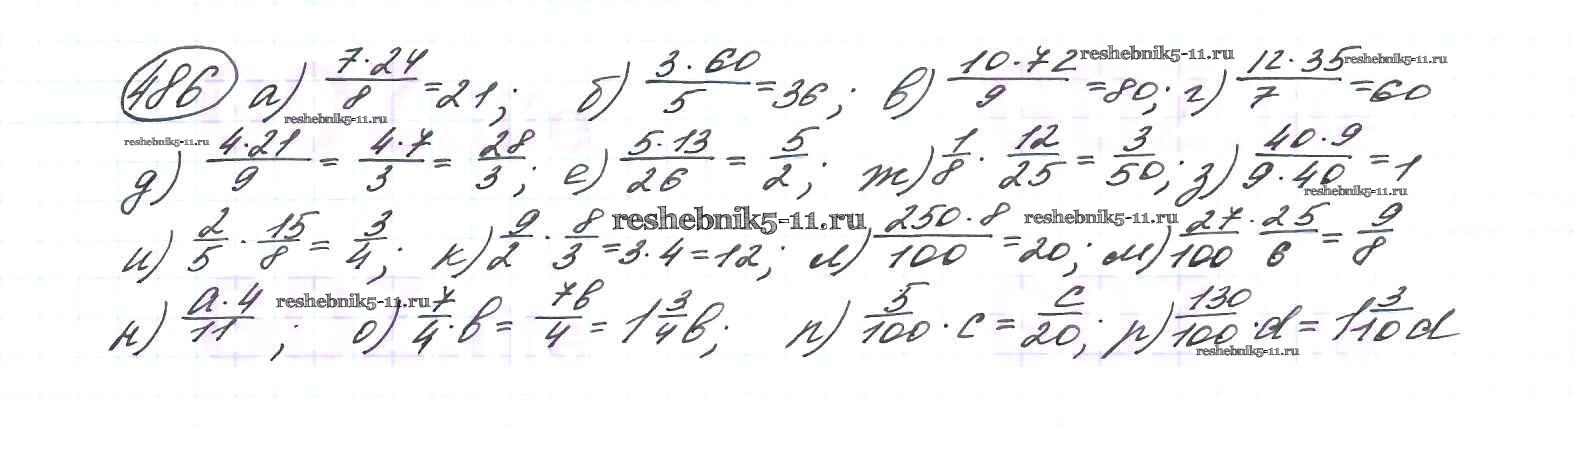 486 а) 7·24/8 = 21; б) 3·60/5 = 36; в) 10·72/9 = 80; г) 12·35/7 = 60
д) 4·21/9 = 4·7/3 = 28/3; е) 5·13/26 = 5/2; ж) 1/8 · 12/25 = 3/50; з) 40·9/9·40 = 1
и) 2/5 · 15/8 = 3/4; к) 9/2 · 8/3 = 3·4 = 12; л) 250·8/100 = 20; м) 27/100 · 25/6 = 9/8
н) a·4/11; о) 7/4 · b = 7b/4 = 1 3/4 b; п) 5/100 · c = c/20; р) 130/100 · d = 1 3/10 d
reshebnik5-11.ru
reshebnik5-11.ru
reshebnik5-11.ru
reshebnik5-11.ru
reshebnik5-11.ru
reshebnik5-11.ru
reshebnik5-11.ru
reshebnik5-11.ru
reshebnik5-11.ru